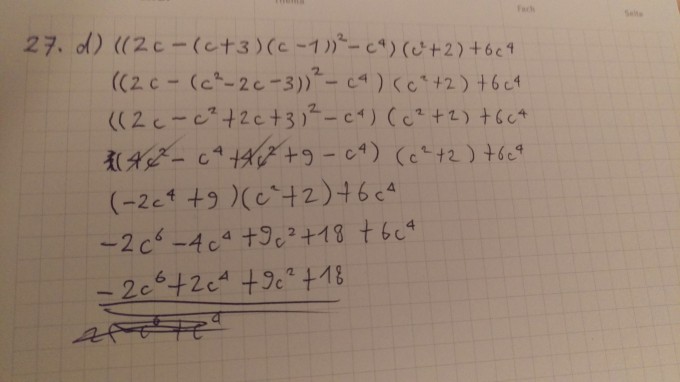 Thema
Fach
Seite
27. d) ((2c-(c+3)(c-1))²-c⁴)(c²+2)+6c⁴
((2c-(c²-2c-3))²-c⁴)(c²+2)+6c⁴
((2c-c²+2c+3)²-c⁴)(c²+2)+6c⁴
(4c²-c⁴+4c²+9-c⁴)(c²+2)+6c⁴
(-2c⁴+9)(c²+2)+6c⁴
-2c⁶-4c⁴+9c²+18+6c⁴
-2c⁶+2c⁴+9c²+18